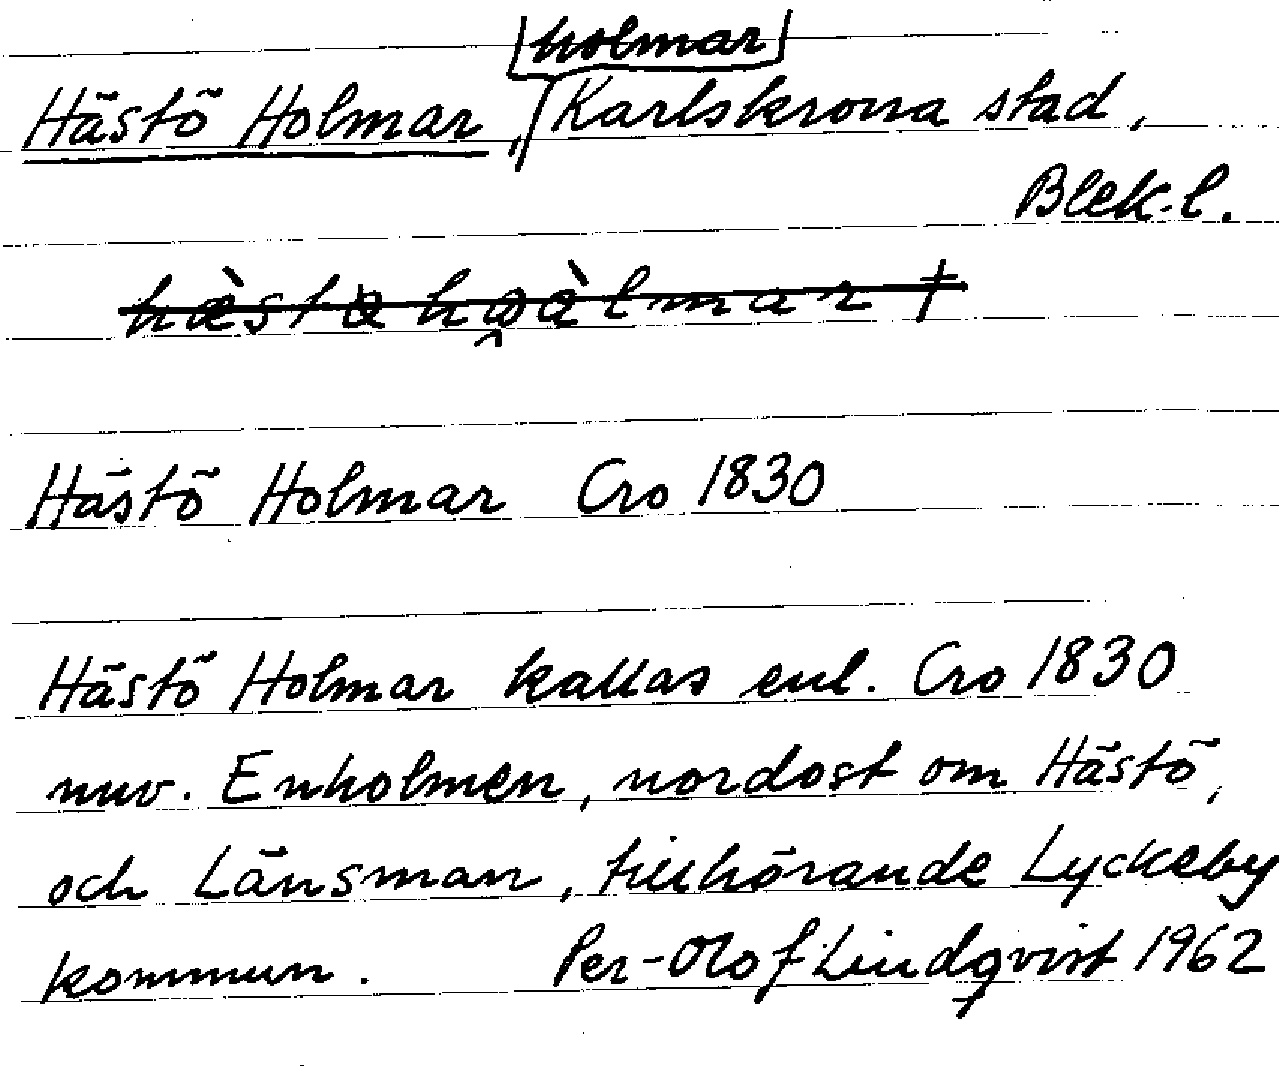 holmar
Hästö Holmar, Karlskrona stad,
Blek. l.
Hästö Holmar Cro 1830
Hästö Holmar kallas enl. Cro 1830
nuv. Enholmen, nordost om Hästö,
och Länsman, tillhörande Lyckeby
kommun. Per-Olof Lindqvist 1962